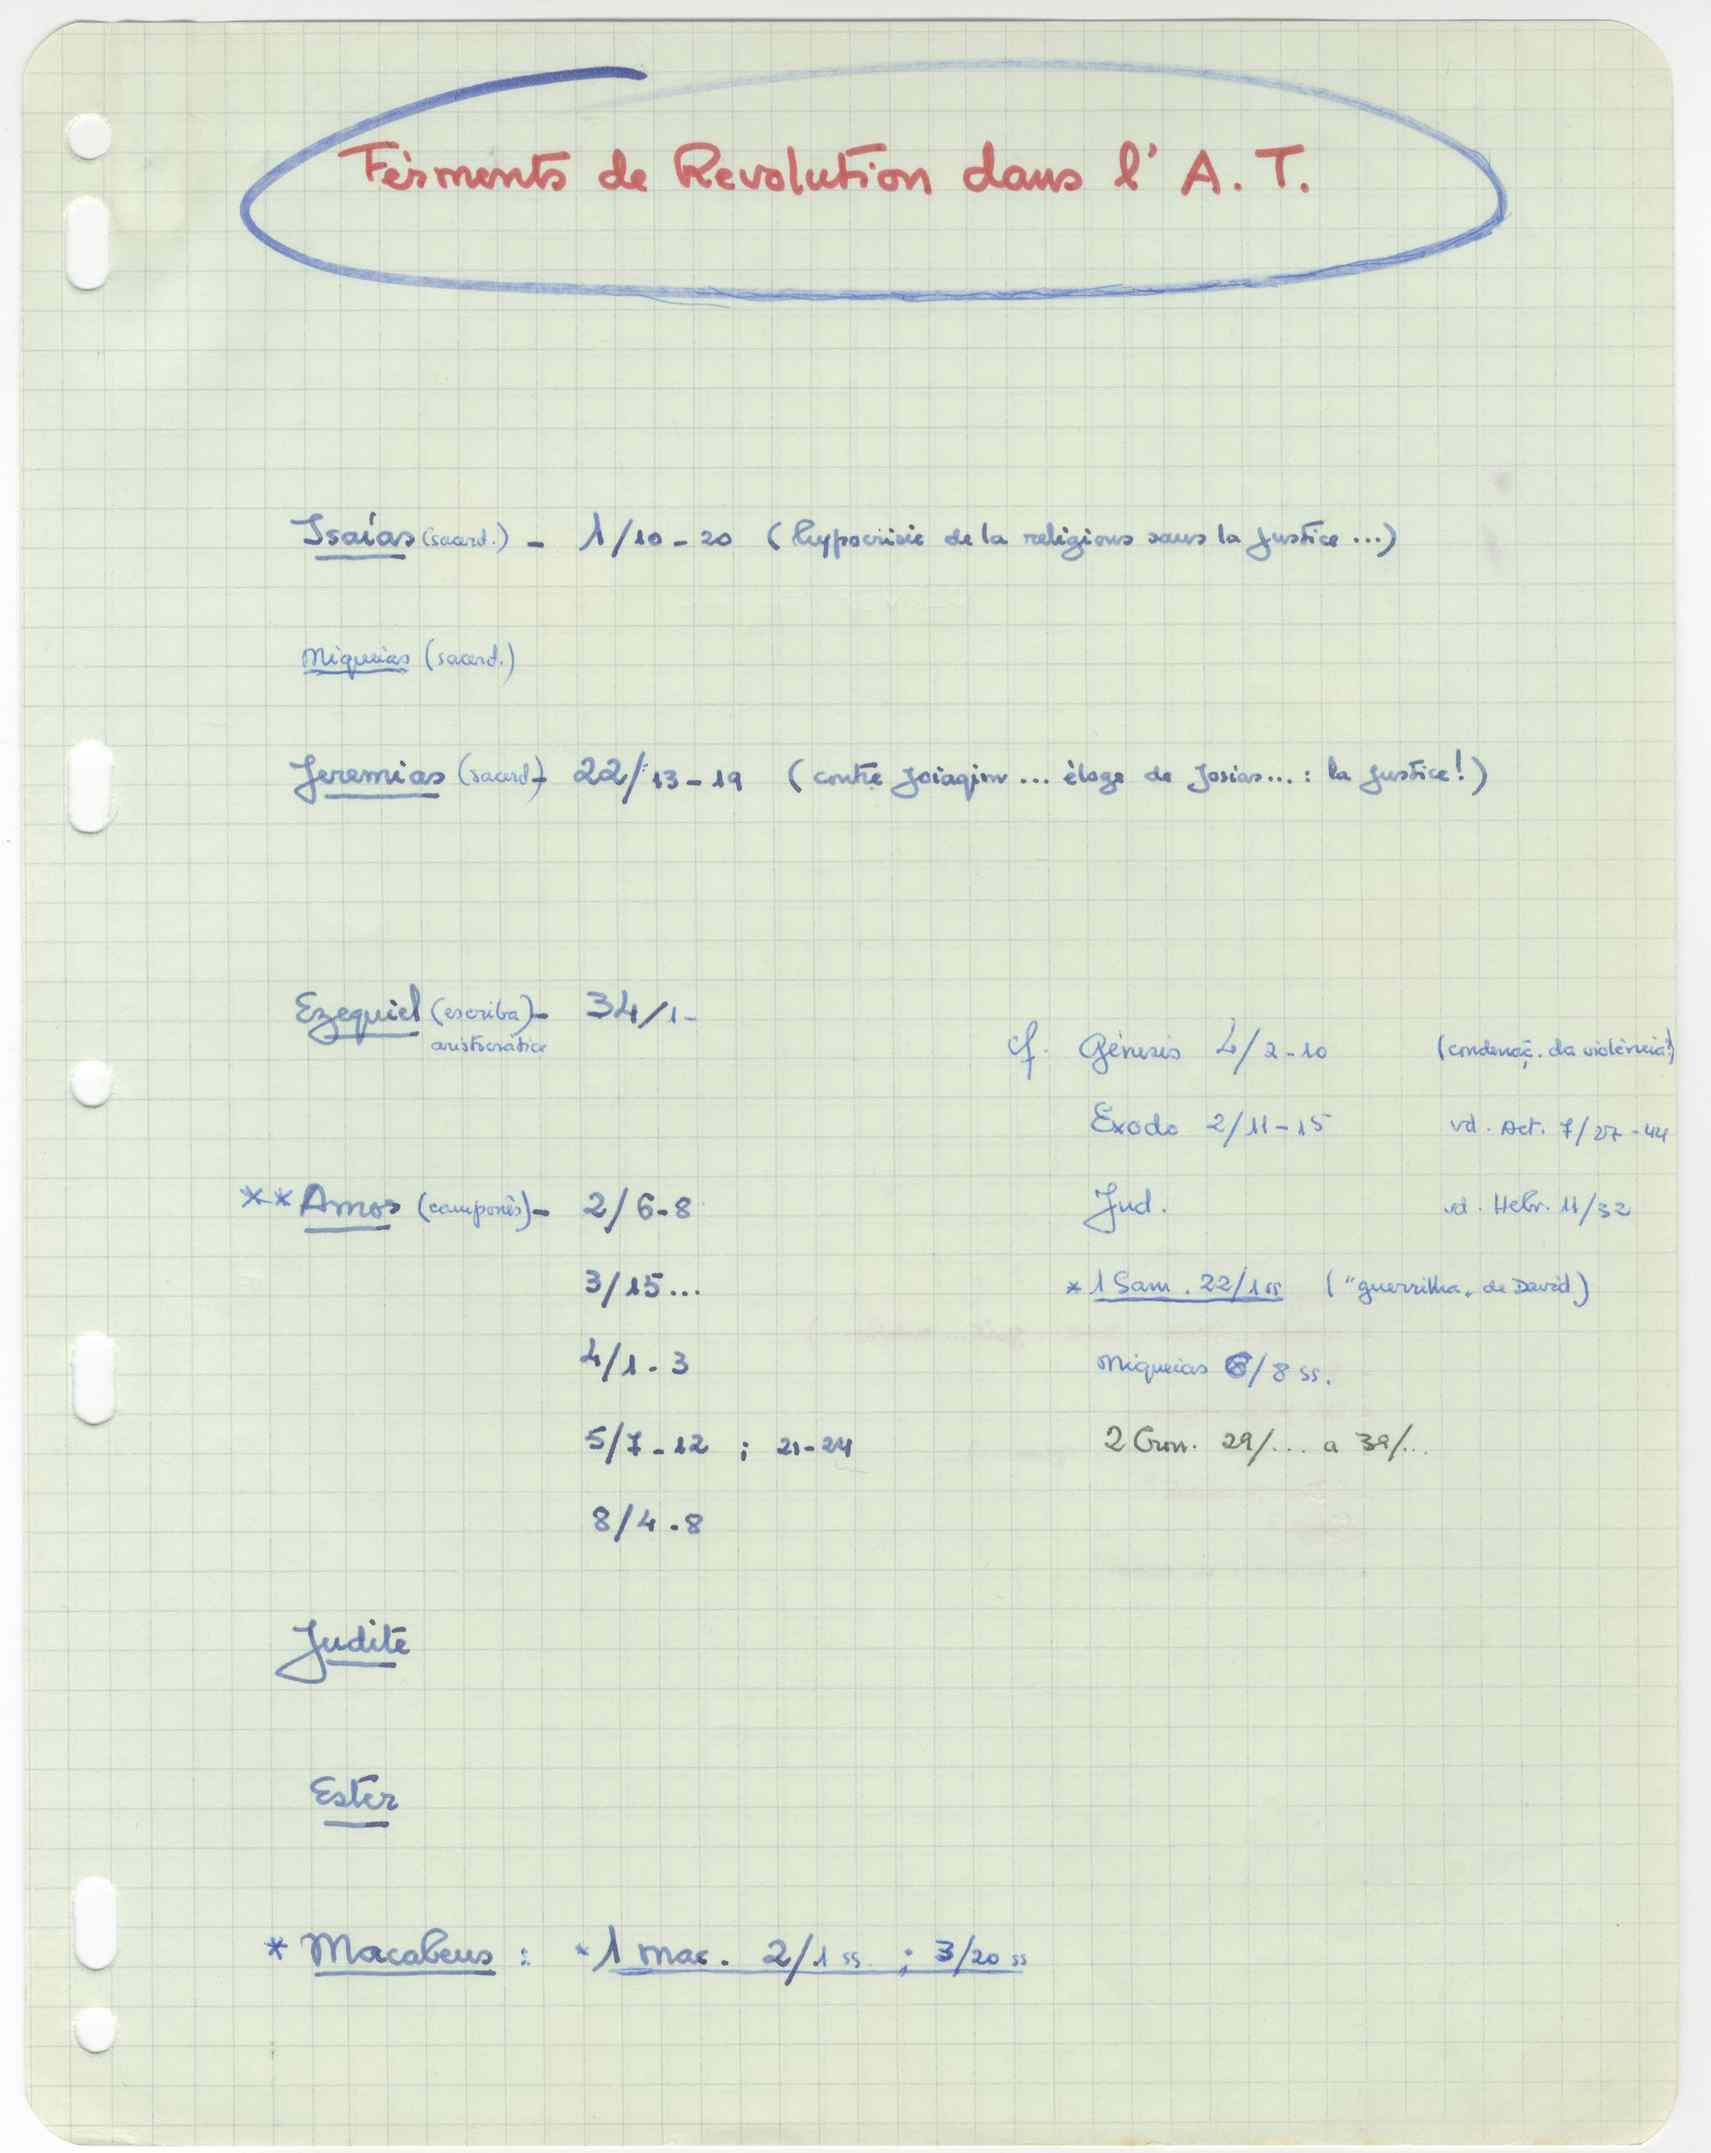 Ferments de Revolution dans l'A.T.
Isaías (sacerd.) - 1/10-20 (hypocrisie de la religions sans la justice ...)
Miqueias (sacerd.)
Jeremias (sacerd.) - 22/13-19 (contre Joiaqim ... éloge de Josias... : la justice!)
Ezequiel (escriba) - 34/1-
aristocrático
cf. Génesis 4/2-10 (condenaç. da violência!)
Exodo 2/11-15 vd. Act. 7/27-44
** Amos (camponês) - 2/6-8
Jud. vd. Hebr. 11/32
3/15...
* 1 Sam. 22/1 ss ("guerrilha" de David)
4/1-3
Miqueias 6/8 ss.
5/7-12 ; 21-24
2 Cron. 29/... a 39/...
8/4-8
Judite
Ester
* Macabeus : * 1 Mac. 2/1 ss. ; 3/20 ss